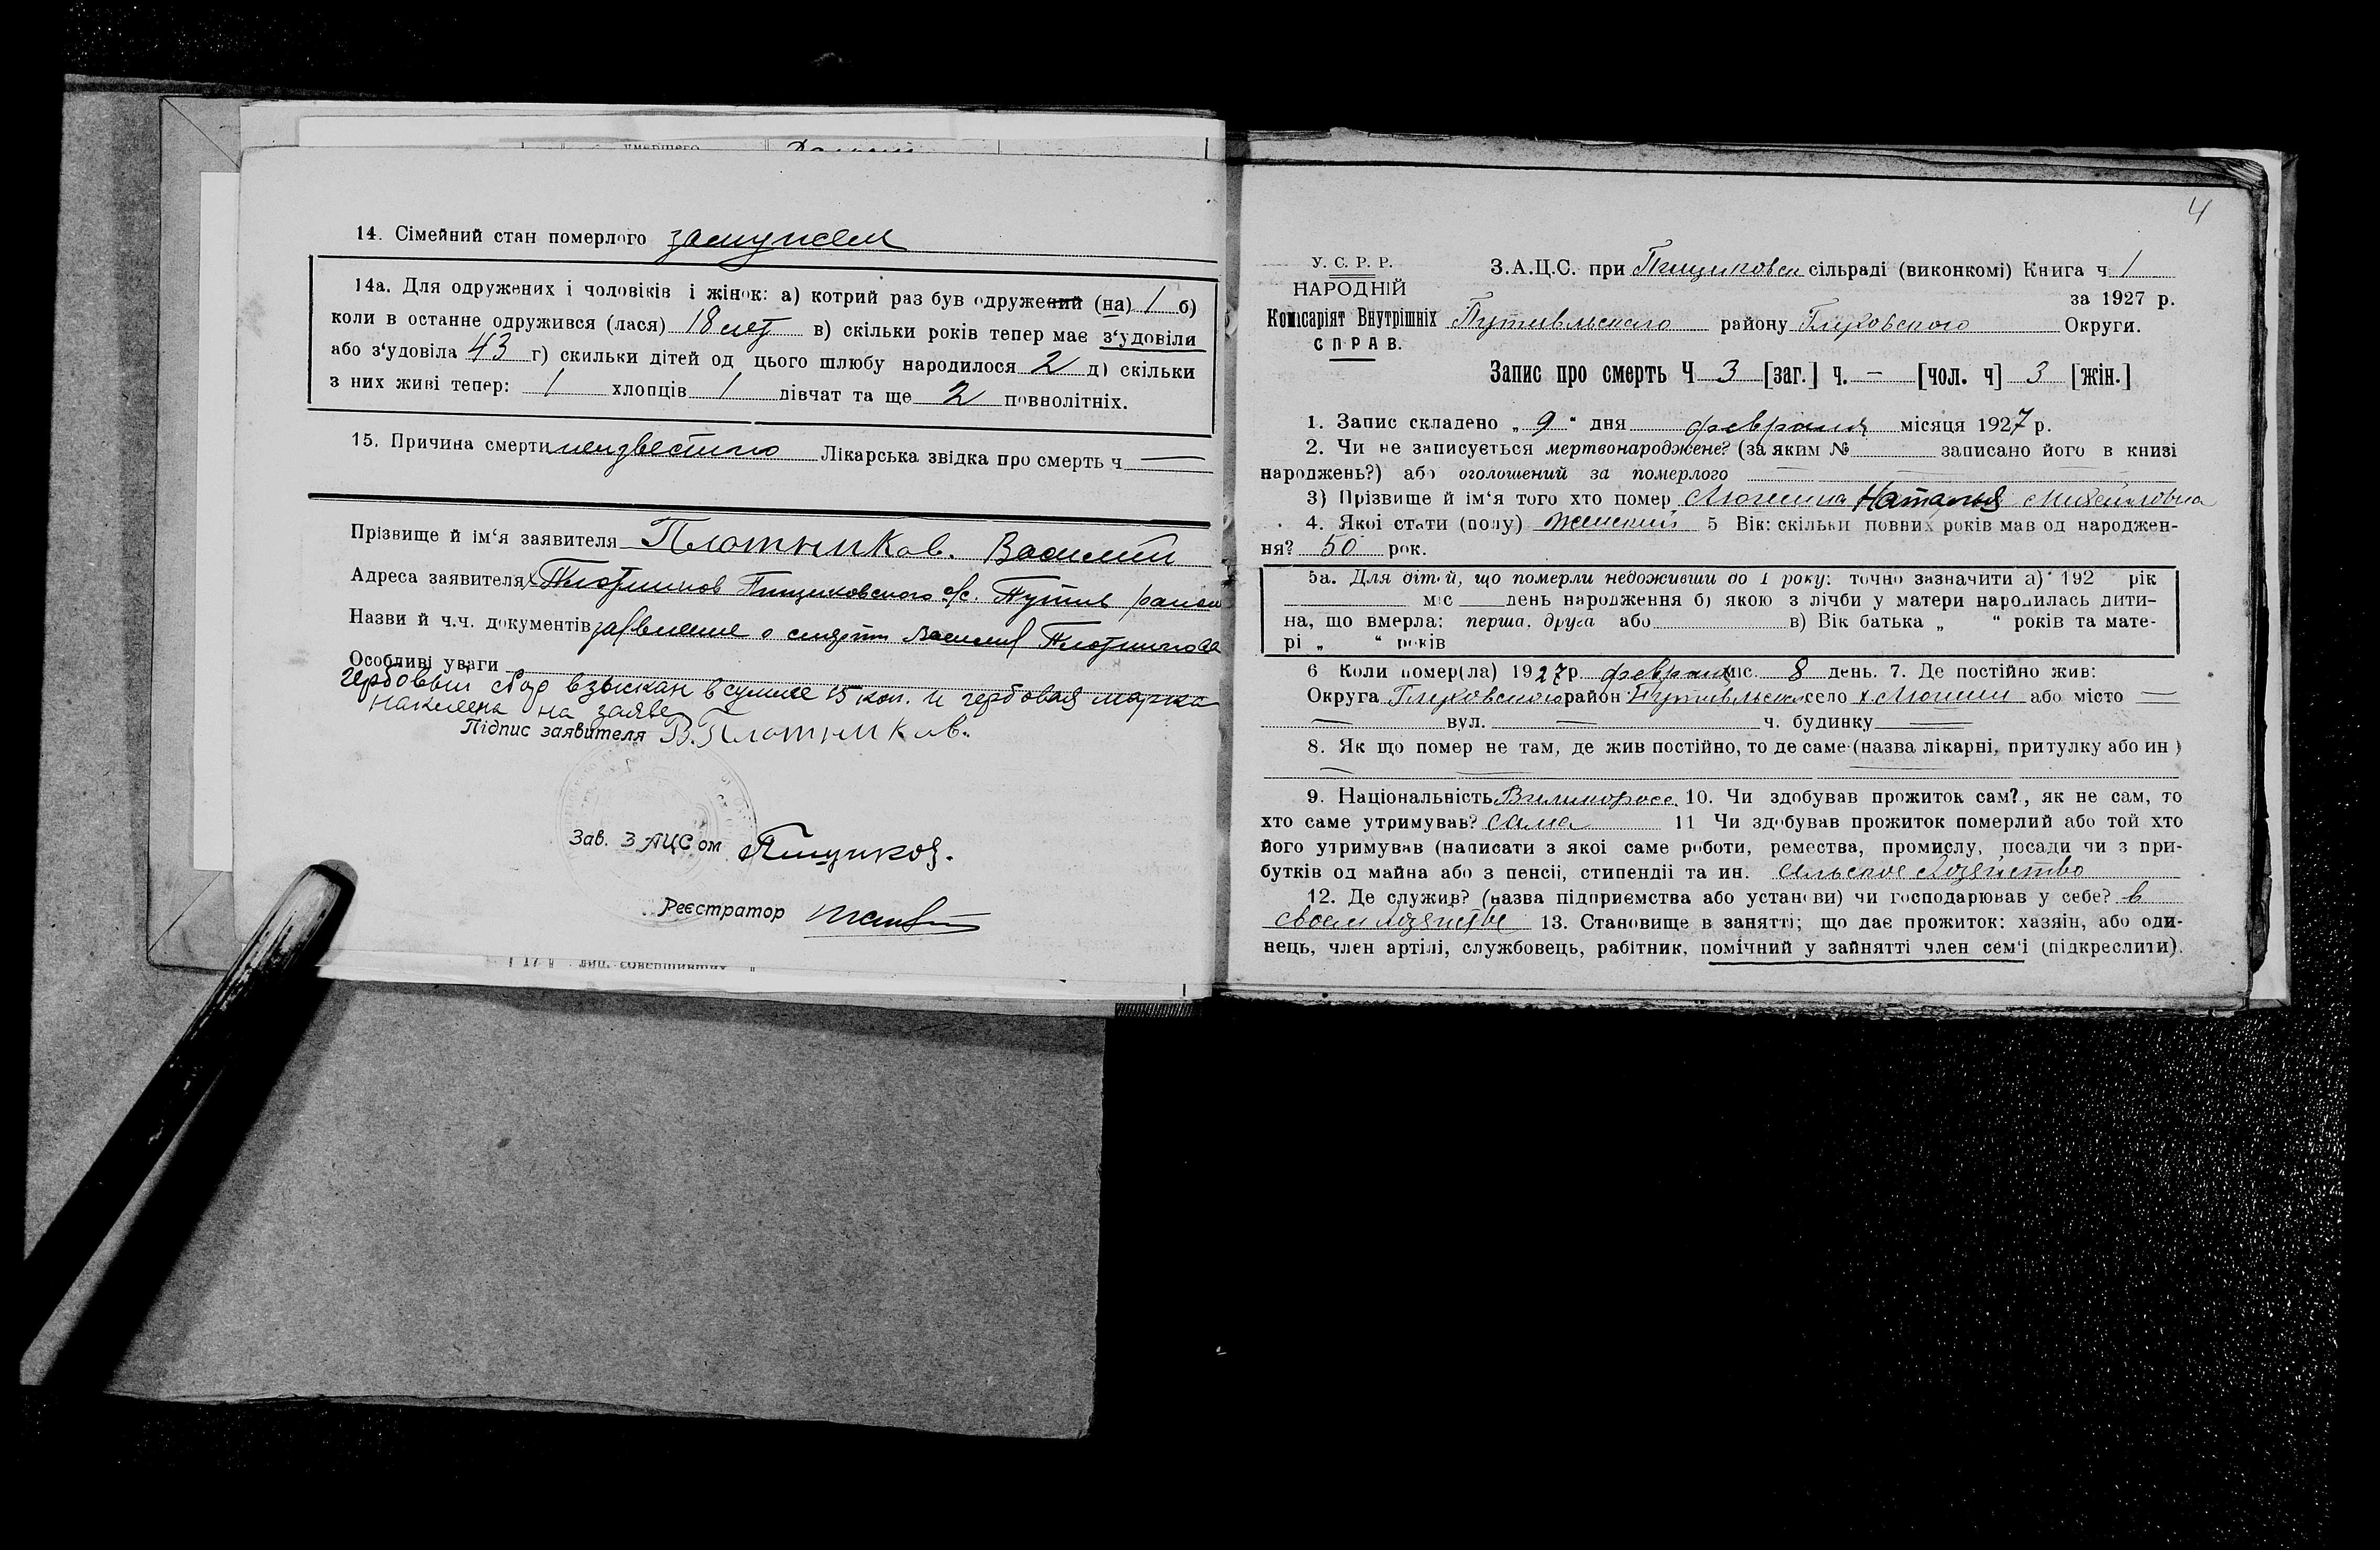 14. Сімейний стан померлого замужем
14а. Для одружених і чоловіків і жінок: а) котрий раз був одружений (на) 1 б)
коли в останне одружився (лася) 18 лет в) скільки років тепер має з‘удовіли
або з‘удовіла 43 г) скильки дітей од цього шлюбу народилося 2 д) скільки
з них живі тепер: 1 хлопців 1 дівчат та ще 2 повнолітніх.
15. Причина смерти неизвестно Лікарська звідка про смерть ч —
Прізвище й ім‘я заявителя Плотников. Василий
Адреса заявителя х. Плотников Пищиковского с/с. Путив район
Назви й ч.ч. документів заявление о смерти Василия Плотникова
Особливі уваги
Гербовый сбор взыскан в сумме 15 коп. и гербовая марка
наклеена на заяве
Підпис заявителя В. Плотников.
Зав. ЗАЦС ом
Реєстратор
4
У. С. Р. Р.
НАРОДНІЙ
Комісаріят Внутрішніх
СПРАВ.
З.А.Ц.С. при Пищиковск сільраді (виконкомі) Книга ч 1
за 1927 р.
Путивльского району Глуховского Округи.
Запис про смерть Ч 3 [заг.] ч. — [чол. ч] 3 [жін.]
1. Запис складено „ 9 “ дня февраля місяця 1927 р.
2. Чи не записується мертвонароджене? (за яким № записано його в книзі
народжень?) або оголошений за померлого —
3) Прізвище й ім‘я того хто помер Люшина Наталья Михайловна
4. Якоі стати (полу) женский 5 Вік: скільки повних років мав од народжен-
ня? 50 рок.
5а. Для дітей, що померли недоживши до 1 року: точно зазначити а) 192 рік
міс день народження б) якою з лічби у матери народилась дити-
на, що вмерла: перша, друга або в) Вік батька „ “ років та мате-
рі „ “ років
6 Коли помер(ла) 1927 р. февраля міс. 8 день. 7. Де постійно жив:
Округа Глуховского район Путивльск село х. Люшин або місто —
— вул. — ч. будинку —
8. Як що помер не там, де жив постійно, то де саме (назва лікарні, притулку або ин)
9. Національність Великоросс. 10. Чи здобував прожиток сам?, як не сам, то
хто саме утримував? сама 11 Чи здобував прожиток померлий або той хто
його утримував (написати з якоі саме роботи, ремества, промислу, посади чи з при-
бутків од майна або з пенсіі, стипендіі та ин. Сельское хозяйство
12. Де служив? (назва підприємства або установи) чи господарював у себе? в
своем хозяйстве 13. Становище в занятті; що дає прожиток: хазяін, або оди-
нець, член артілі, службовець, рабітник, помічний у зайнятті член сем‘і (підкреслити).